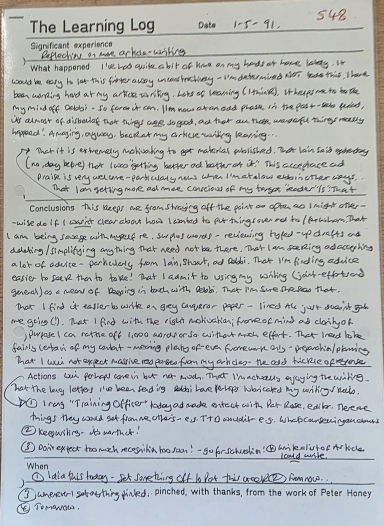 548
The Learning Log Date 1-5-91.
Significant experience
Reflections on more article-writing
What happened I've had quite a bit of time on my hands at home lately. It
would be easy to let this fritter away unconstructively - I'm determined not to do this, I have
been working hard at my article writing. Lots of learning (I think). It helps me to take
my mind off Debbi - so far as it can. I'm now at an odd phase in the post-
its almost of disbelief that things were so good, and that all these wonderful things really
happened! Amazing. Anyway, back at my article writing learning...
That it is extremely motivating to get material published. That Iain said yesterday
(no, day before) that I was "getting better and better at it". This acceptance and
praise is very welcome - particularly now when I'm at a low ebb in other ways.
That I am getting more and more conscious of my target 'reader'. That
Conclusions this keeps me from straying off the point as often as I might other-
-wise do if I wasn't clear about how I wanted to put things over and to/for whom. That
I am being savage with myself re. surplus words - reviewing typed-up drafts and
deleting/simplifying anything that need not be there. That I am seeking and accepting
a lot of advice - particularly from Iain, Stuart, and Debbi. That I'm finding advice
easier to ask for than to take! That I admit to using my writing (joint efforts and
general) as a means of keeping in touch with Debbi. That I'm sure she sees that.
That I find it easier to write on grey computer paper - lined A4 just doesn't get
me going (!). That I find with the right motivation, frame of mind and clarity of
purpose I can rattle off 1,000 words or so without much effort. That I need to be
fairly certain of my content - meaning plenty of even framework only - preparation/planning.
That I will not expect massive responses from my articles - the odd trickle of response
Actions will perhaps come in but not much. That I'm actually enjoying the writing -
that the long letters I've been sending Debbi have perhaps lubricated my writing wheels.
① I rang "Training Officer" today and made contact with Pat Rose, editor. There are
things they would get from me others - e.g. T+D wouldn't e.g.
② Keep writing - its worth it!
③ Don't expect too much recognition too soon! - go for satisfaction! ④ Write a list of articles
I could write.
When
① I did this today - Set something off to Pat this week ② from now...
③ Whenever I get anything printed. pinched, with thanks, from the work of Peter Honey
④ Tomorrow.